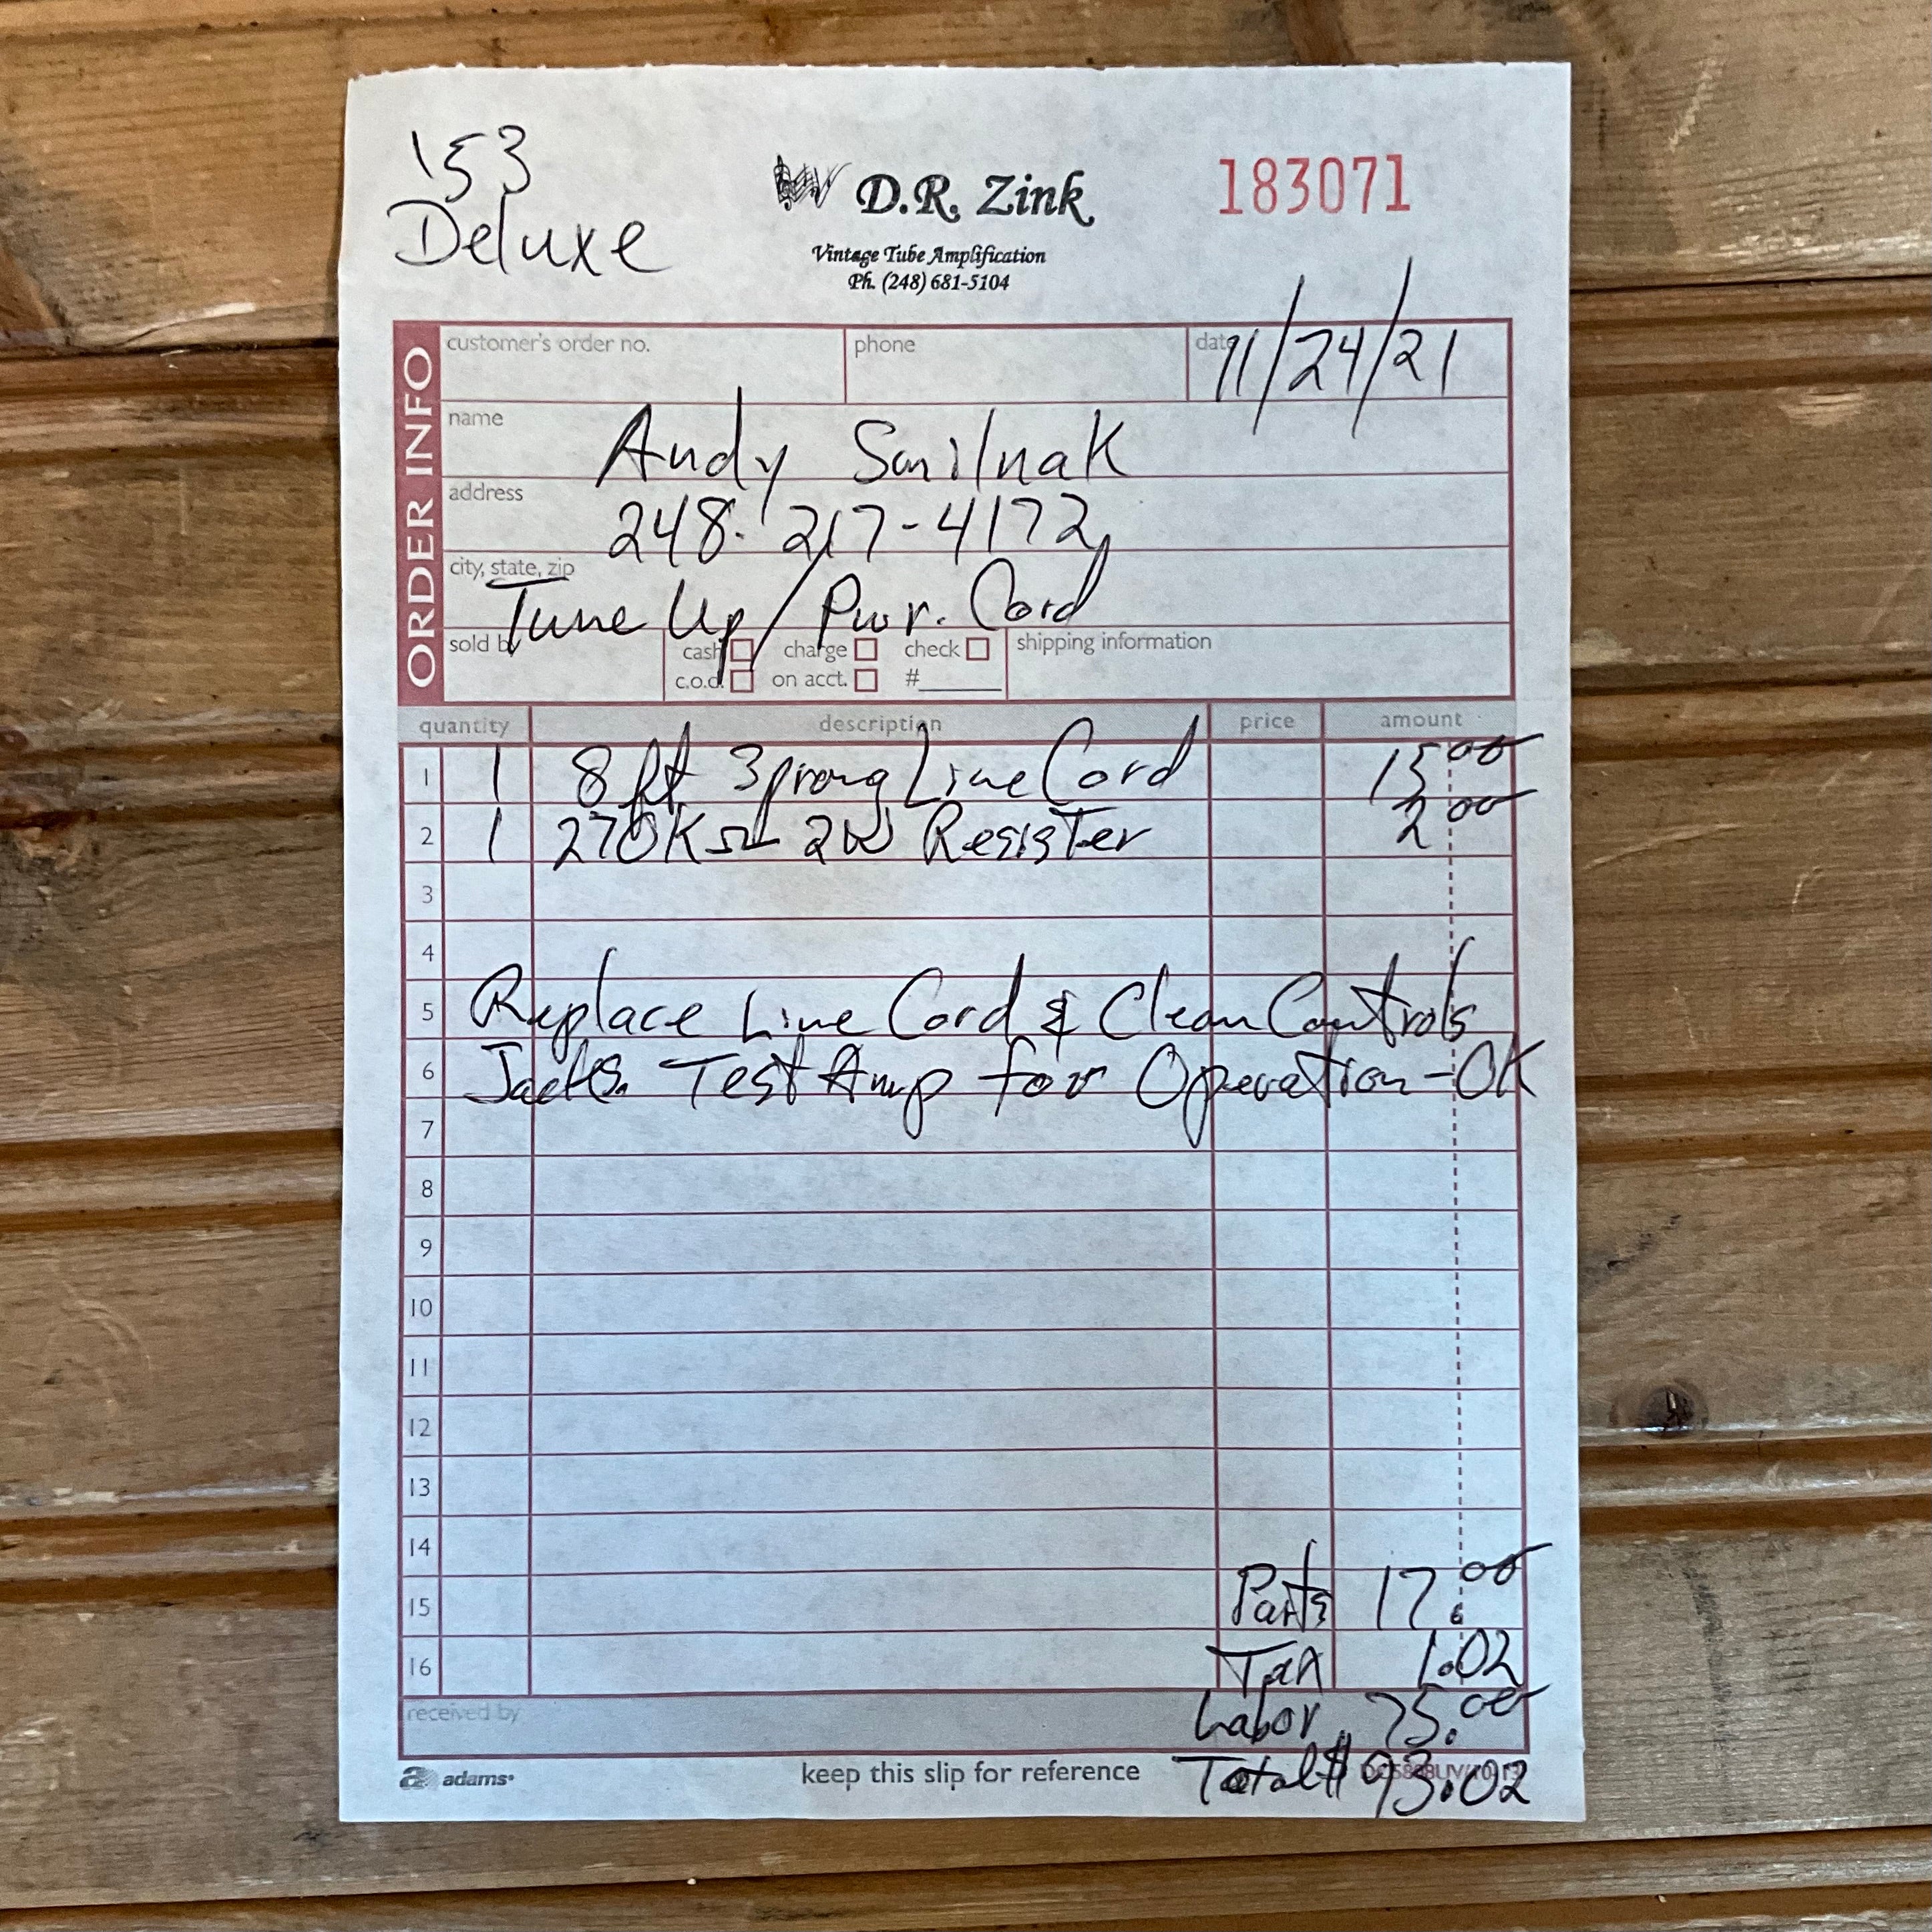 '53
Deluxe
D.R. Zink
Vintage Tube Amplification
Ph. (248) 681-5104
183071
ORDER INFO
customer's order no. phone date 11/24/21
name Andy Smilnak
address 248-217-4172
city, state, zip
Tune Up / Pwr. Cord
sold by cash charge check shipping information
c.o.d. on acct. #
quantity description price amount
1 1 8 ft 3 prong Line Cord 15.00
2 1 270KΩ 2W Resister 2.00
3
4
5 Replace Line Cord & Clean Controls
6 Jacks. Test Amp for Operation-OK
7
8
9
10
11
12
13
14
15 Parts 17.00
16 Tax 1.02
received by Labor 75.00
adams keep this slip for reference Total $93.02